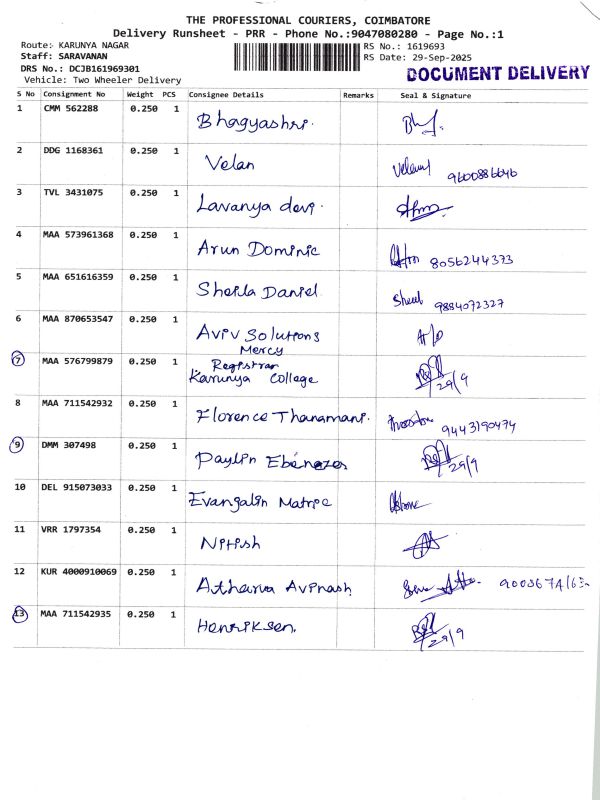 THE PROFESSIONAL COURIERS, COIMBATORE
Delivery Runsheet - PRR - Phone No.:9047080280 - Page No.:1
Route: KARUNYA NAGAR
RS No.: 1619693
Staff: SARAVANAN
RS Date: 29-Sep-2025
DRS No.: DCJB161969301
DOCUMENT DELIVERY
Vehicle: Two Wheeler Delivery
S No Consignment No Weight PCS Consignee Details Remarks Seal & Signature
1 CMM 562288 0.250 1 Bhagyashri.
2 DDG 1168361 0.250 1 Velan
9600886646
3 TVL 3431075 0.250 1 Lavanya devi.
4 MAA 573961368 0.250 1 Arun Dominic 8056244373
5 MAA 651616359 0.250 1 Sheila Daniel
9884072327
6 MAA 870653547 0.250 1 Aviv Solutions
Mercy
7 MAA 576799879 0.250 1 Registrar
Karunya College 29/9
8 MAA 711542932 0.250 1 Florence Thanamani. 9443190474
9 DMM 307498 0.250 1 Paylin Ebenezer 29/9
10 DEL 915073033 0.250 1 Evangalin Matric
11 VRR 1797354 0.250 1 Nitish
12 KUR 4000910069 0.250 1 Atharva Avinash
13 MAA 711542935 0.250 1 Henriksen. 29/9